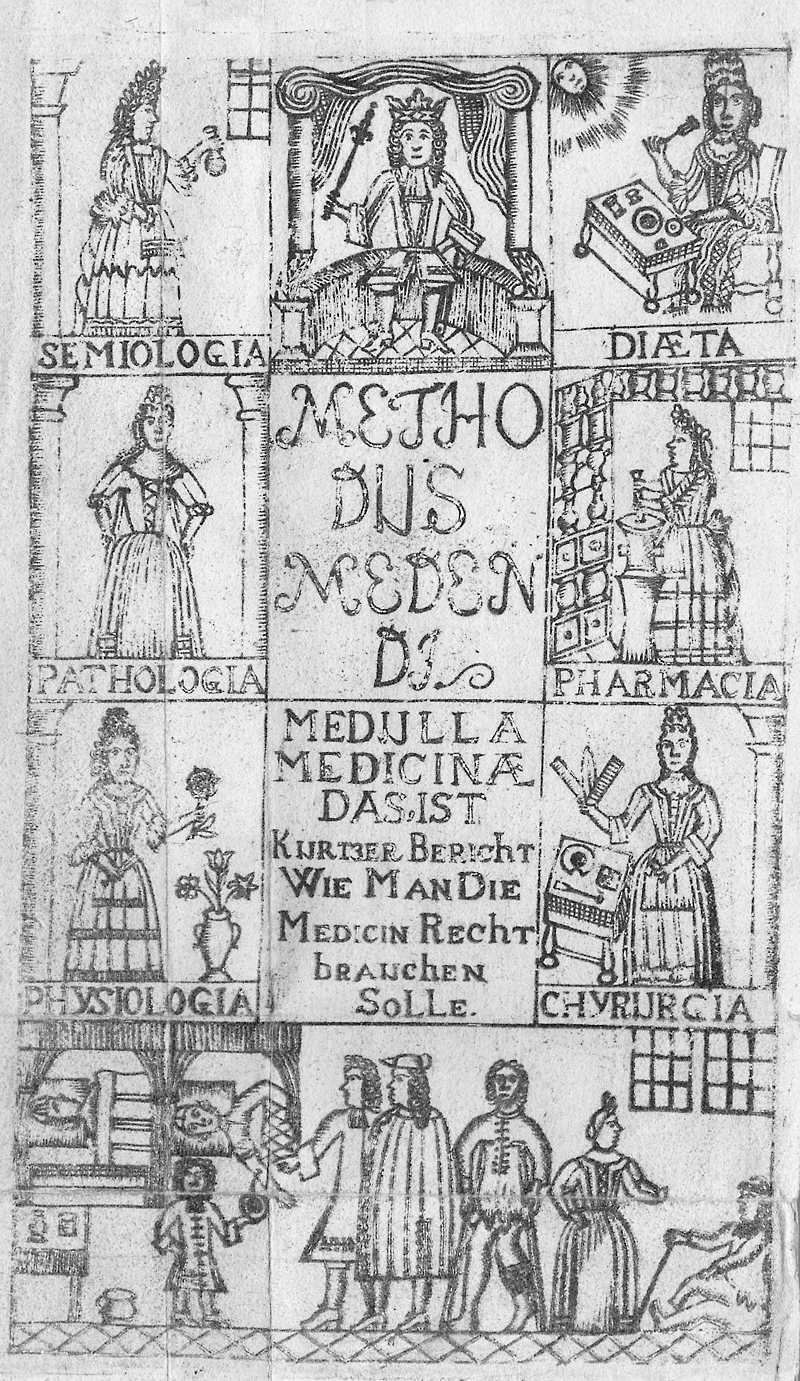 SEMIOLOGIA
DIÆTA
METHO
DUS
MEDEN
DI
PATHOLOGIA
PHARMACIA
MEDULLA
MEDICINÆ
DAS IST
KURTZER BERICHT
WIE MAN DIE
MEDICIN RECHT
BRAUCHEN
SOLLE.
PHYSIOLOGIA
CHYRURGIA